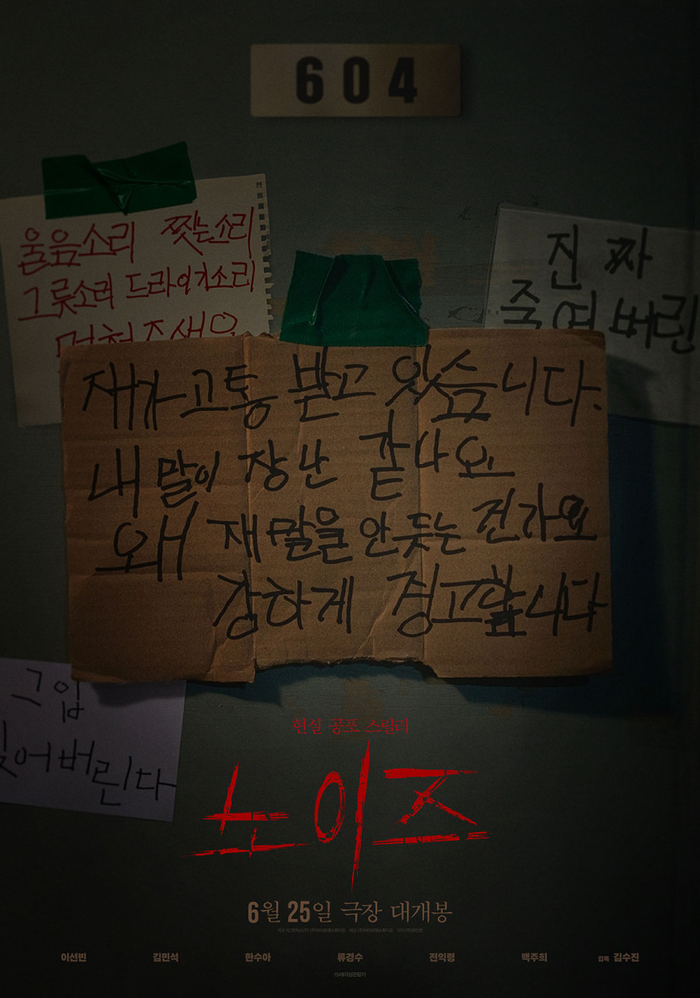 604
울음소리 찢는소리
그릇소리 드라이기소리
진짜
죽여버린
재가 고통 받고 있습니다.
내 말이 장난 같나요
왜 재말을 안듯는 건가요
강하게 경고합니다
그입
어버린다
현실 공포 스릴러
노이즈
6월 25일 극장 대개봉
이선빈 김민석 한수아 류경수 전익령 백주희 감독 김수진